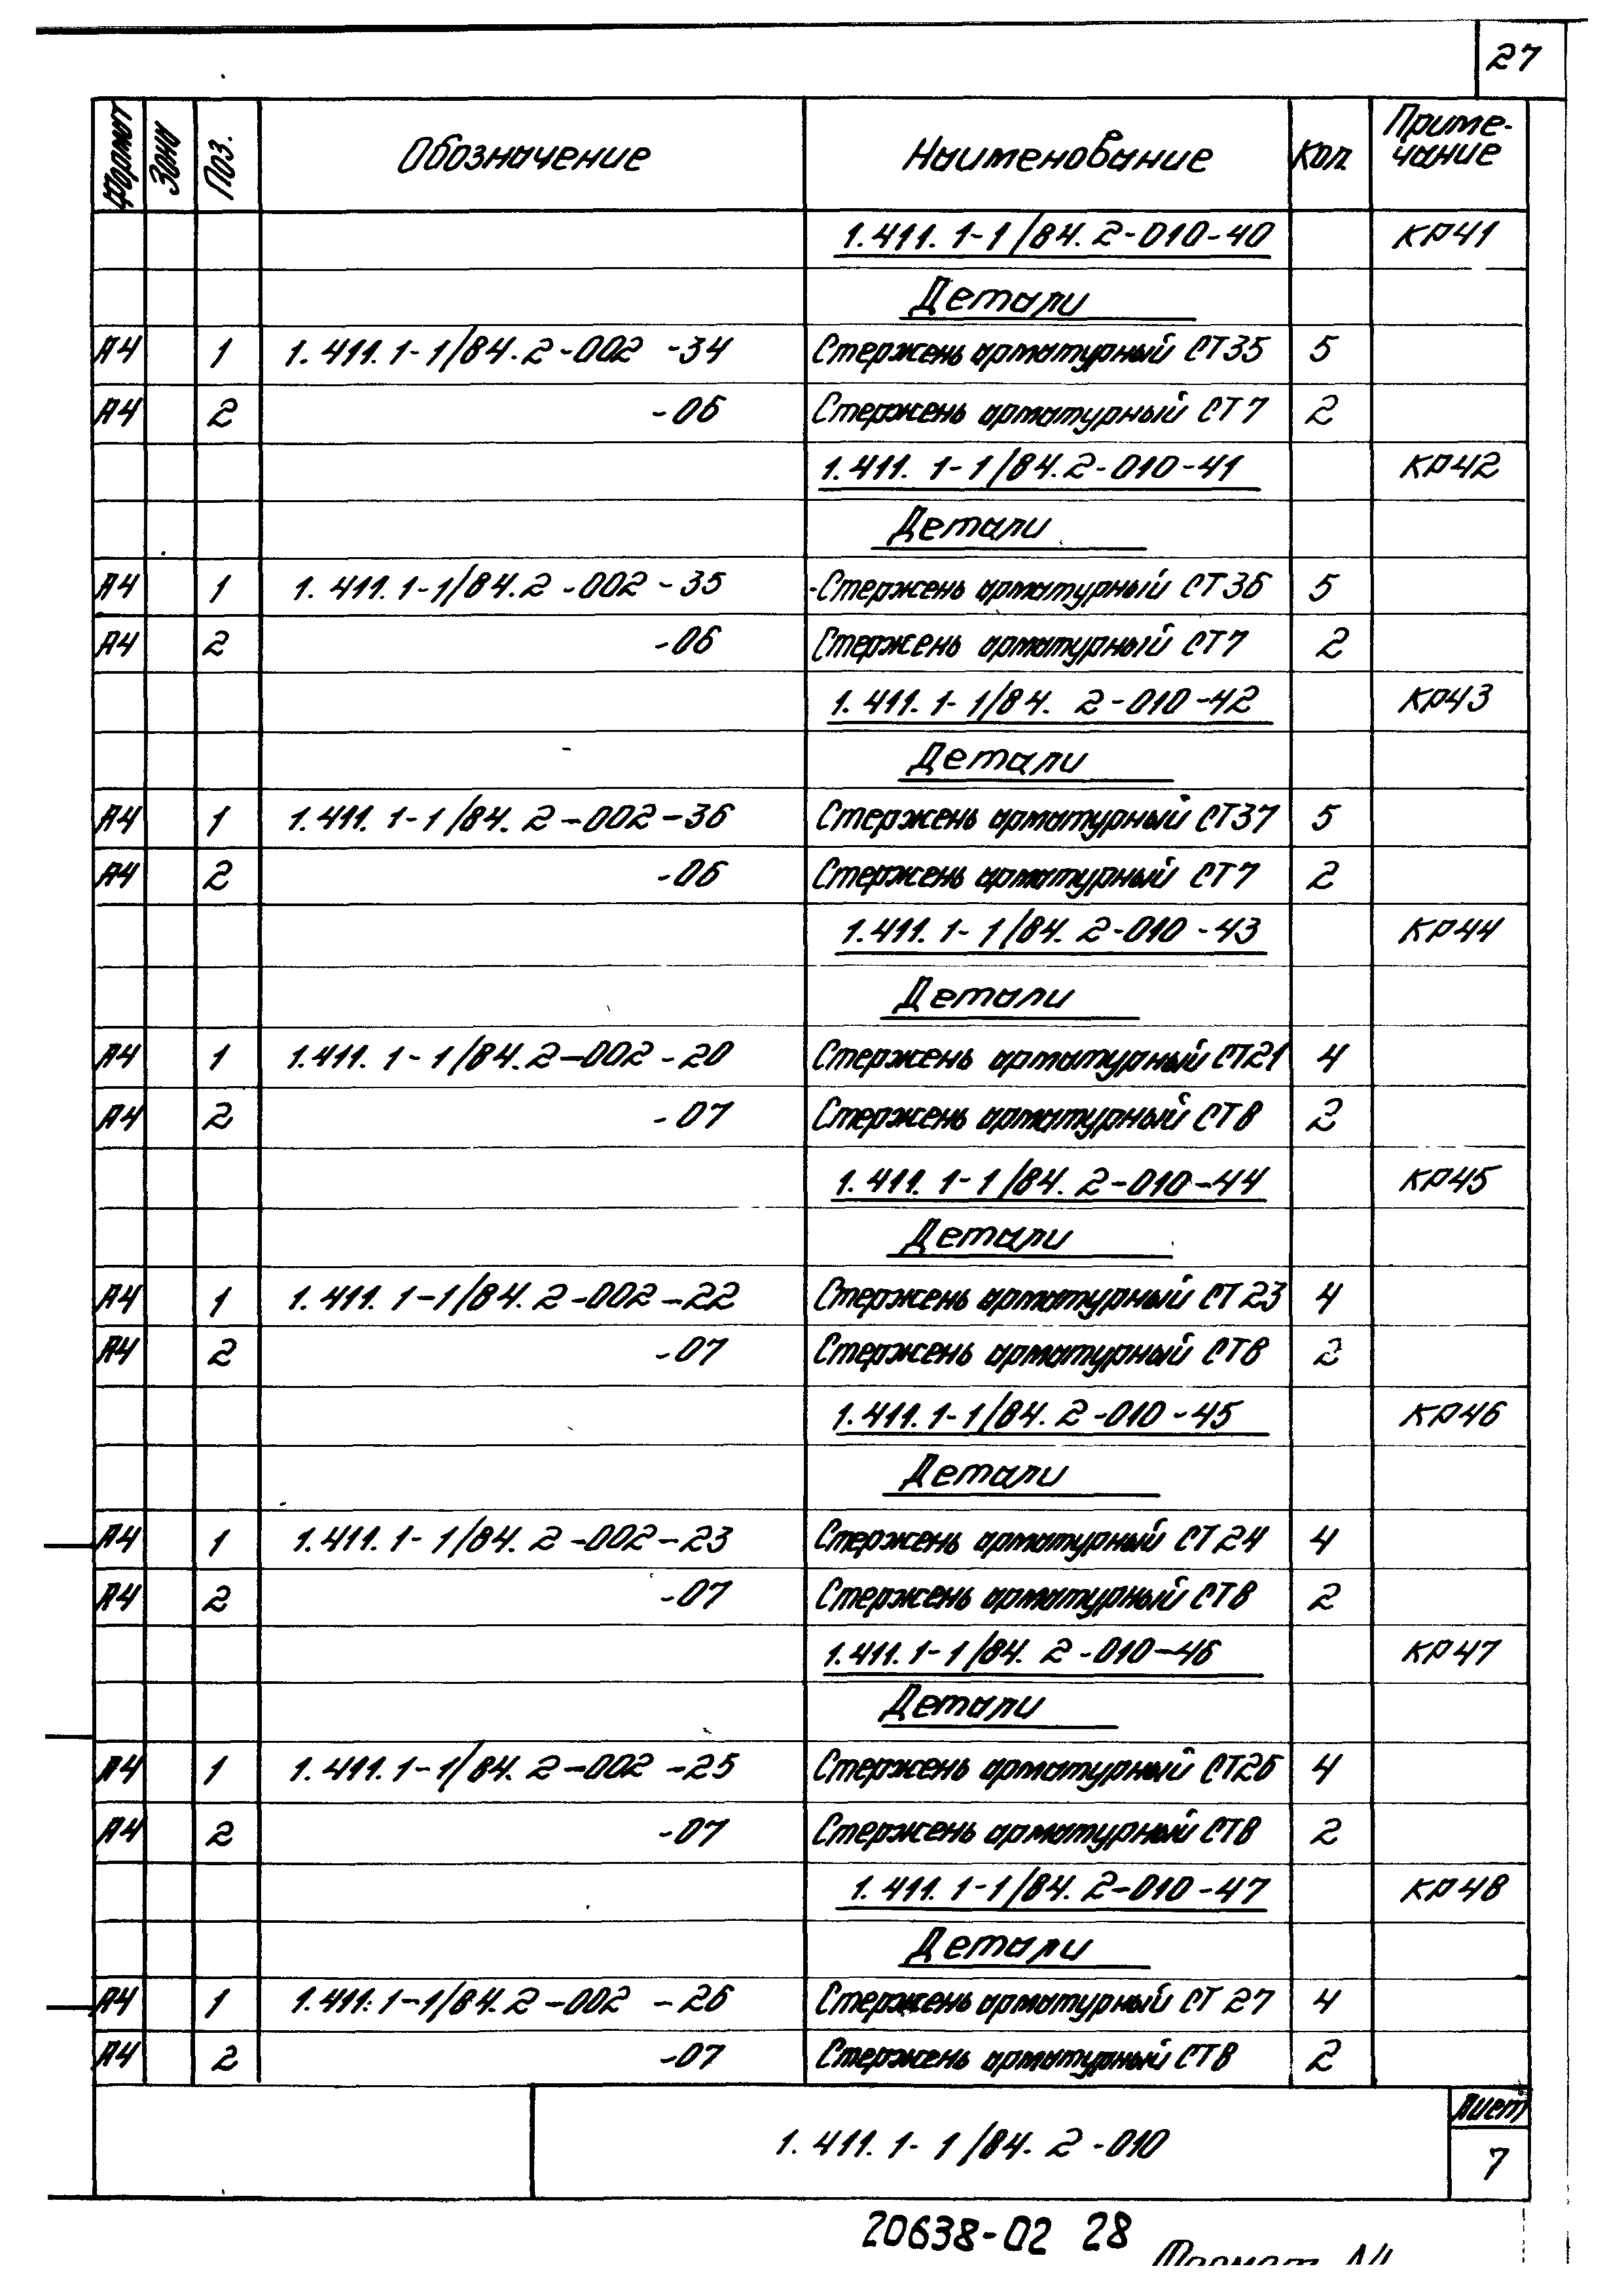 27
Формат Зона Поз. Обозначение Наименование Кол. Приме-
чание
1.411.1-1/84.2-010-40 КР41
Детали
А4 1 1.411.1-1/84.2-002 -34 Стержень арматурный СТ35 5
А4 2 -06 Стержень арматурный СТ7 2
1.411.1-1/84.2-010-41 КР42
Детали
А4 1 1.411.1-1/84.2-002-35 Стержень арматурный СТ36 5
А4 2 -06 Стержень арматурный СТ7 2
1.411.1-1/84.2-010-42 КР43
Детали
А4 1 1.411.1-1/84.2-002-36 Стержень арматурный СТ37 5
А4 2 -06 Стержень арматурный СТ7 2
1.411.1-1/84.2-010-43 КР44
Детали
А4 1 1.411.1-1/84.2-002-20 Стержень арматурный СТ21 4
А4 2 -07 Стержень арматурный СТ8 2
1.411.1-1/84.2-010-44 КР45
Детали
А4 1 1.411.1-1/84.2-002-22 Стержень арматурный СТ23 4
А4 2 -07 Стержень арматурный СТ8 2
1.411.1-1/84.2-010-45 КР46
Детали
А4 1 1.411.1-1/84.2-002-23 Стержень арматурный СТ24 4
А4 2 -07 Стержень арматурный СТ8 2
1.411.1-1/84.2-010-46 КР47
Детали
А4 1 1.411.1-1/84.2-002-25 Стержень арматурный СТ26 4
А4 2 -07 Стержень арматурный СТ8 2
1.411.1-1/84.2-010-47 КР48
Детали
А4 1 1.411.1-1/84.2-002 -26 Стержень арматурный СТ27 4
А4 2 -07 Стержень арматурный СТ8 2
1.411.1-1/84.2-010
Лист
7
20638-02 28
Формат А4